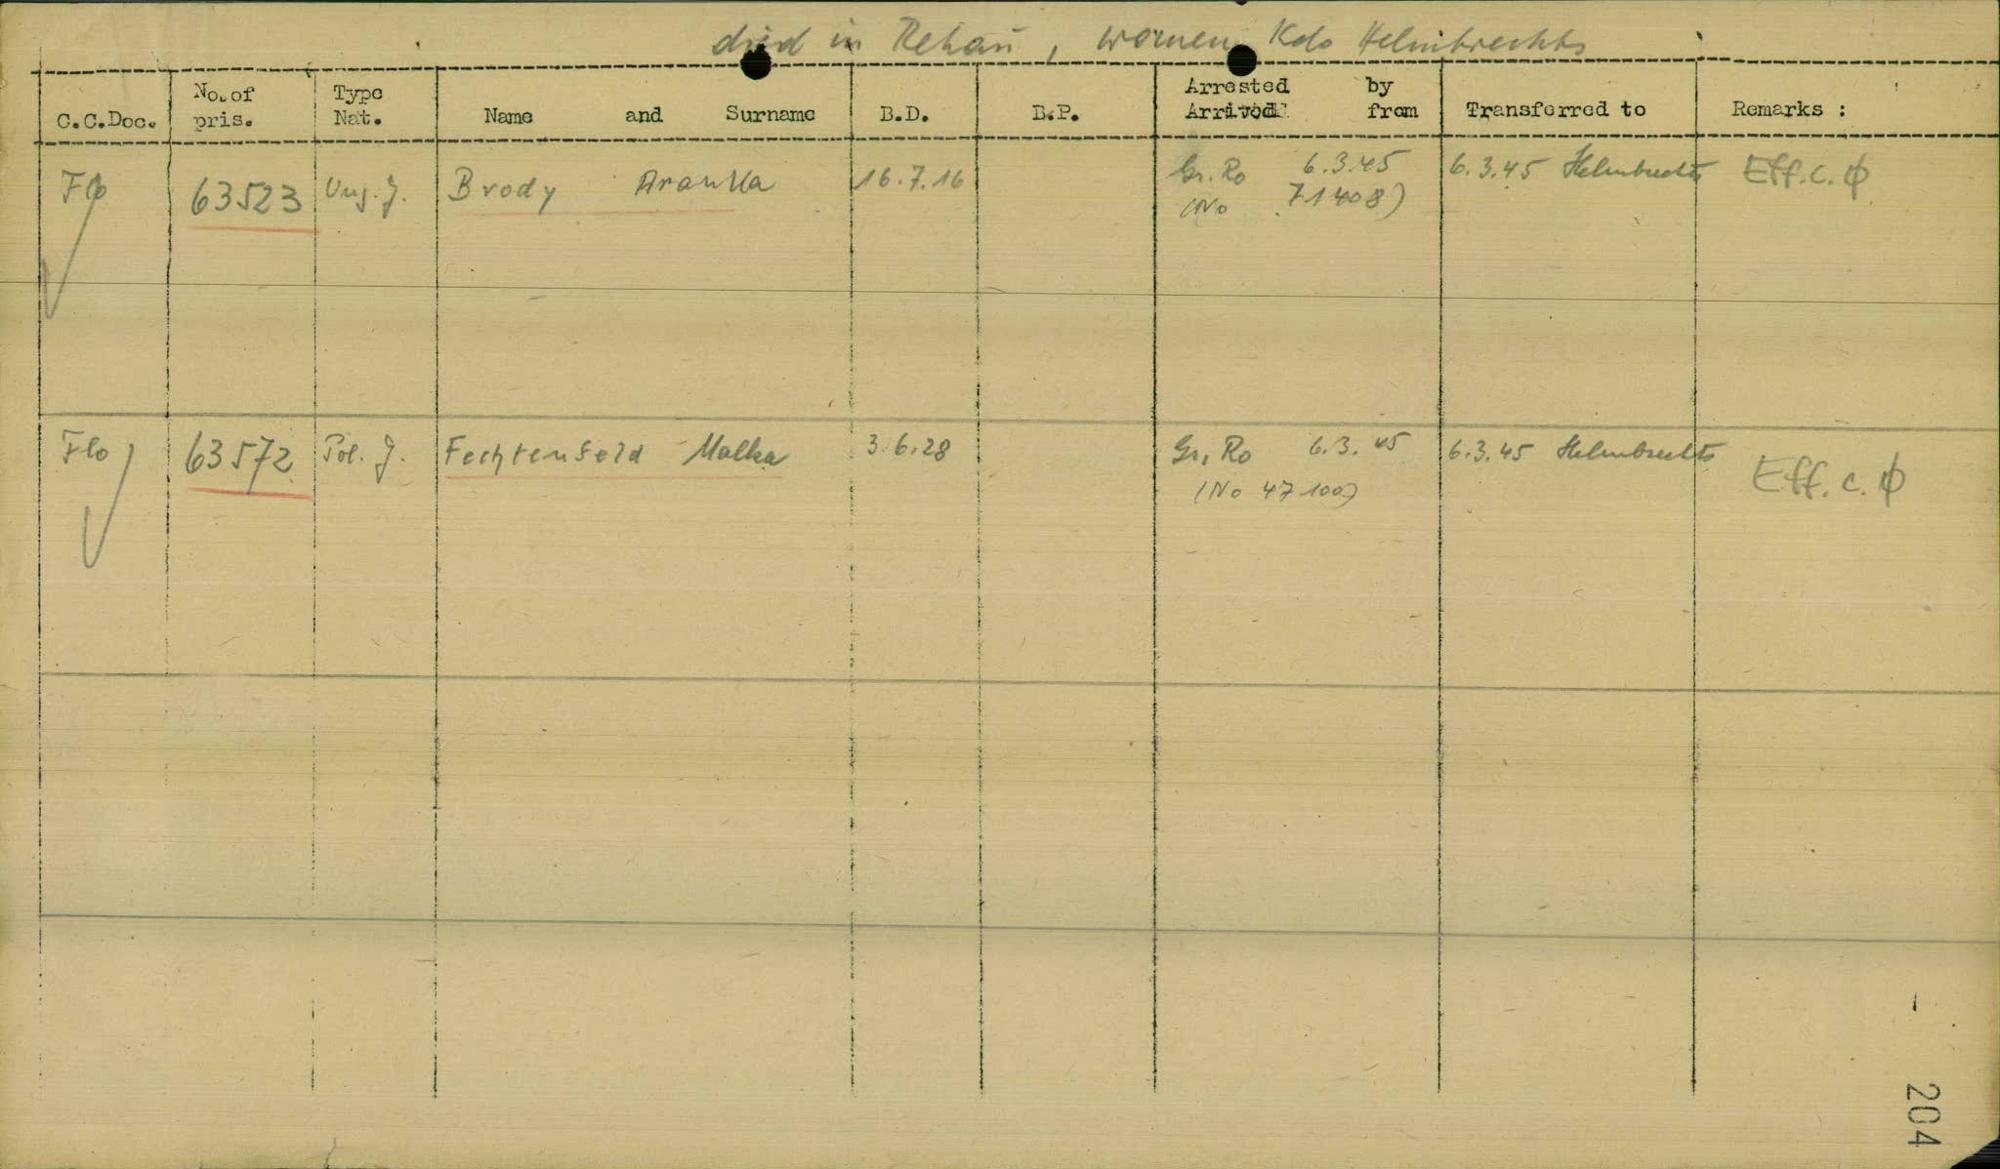 died in Rehau, women Kdo Helmbrechts
C.C.Doc. No. of pris. Type Nat. Name and Surname B.D. B.P. Arrested by Arrived from Transferred to Remarks :
Flo 63523 Ung. J. Brody Aranka 16.7.16 Gr. Ro 6.3.45 6.3.45 Helmbrechts Eff. c. ϕ
(No 71408)
Flo 63572 Pol. J. Fechtenfeld Malka 3.6.28 Gr. Ro 6.3.45 6.3.45 Helmbrechts Eff. c. ϕ
(No 47100)
- 204